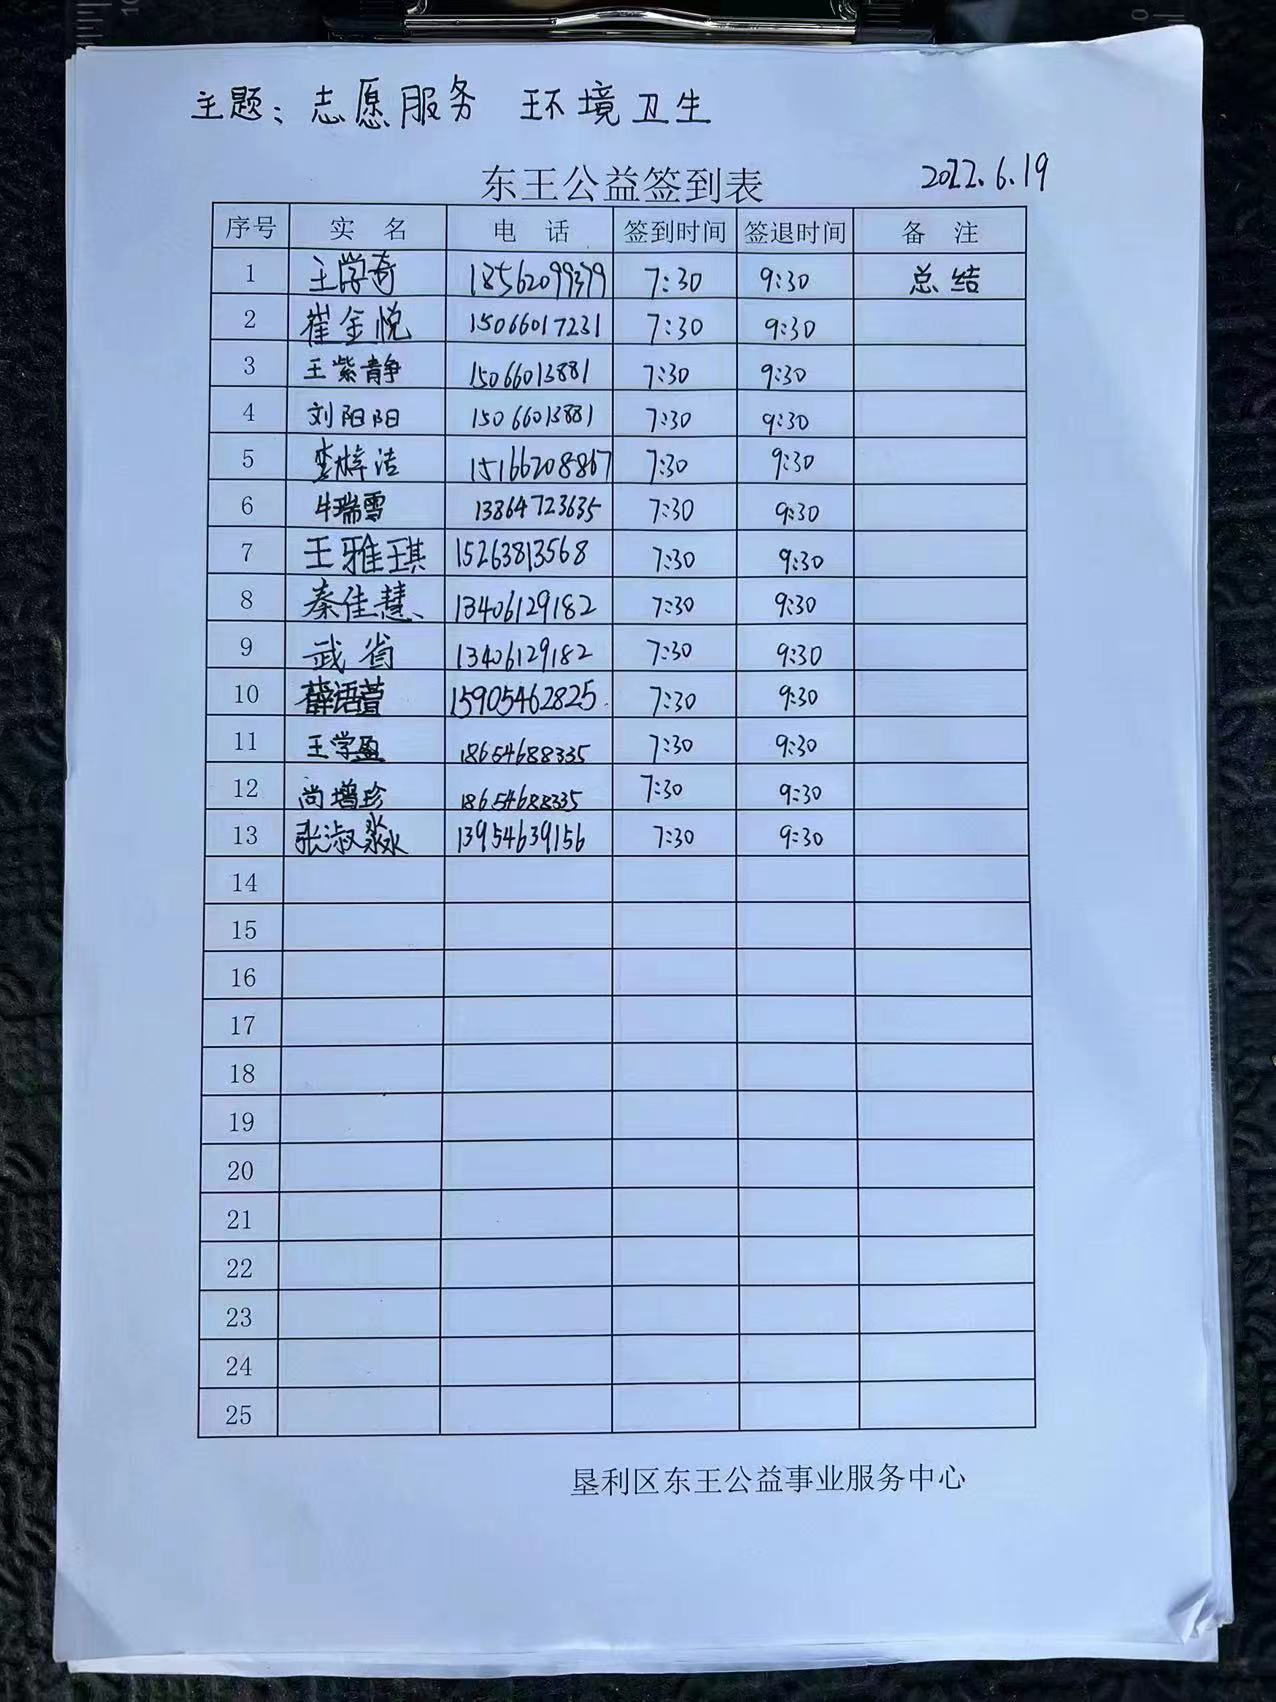 主题：志愿服务 环境卫生
东王公益签到表 2022.6.19
序号 实名 电话 签到时间 签退时间 备注
1 王学奇 18562099379 7:30 9:30 总结
2 崔金悦 15066017231 7:30 9:30
3 王紫静 15066013881 7:30 9:30
4 刘阳阳 15066013881 7:30 9:30
5 栾梓洁 15166208867 7:30 9:30
6 牛瑞雪 13864723635 7:30 9:30
7 王雅琪 15263813568 7:30 9:30
8 秦佳慧 13406129182 7:30 9:30
9 武省 13406129182 7:30 9:30
10 薛语萱 15905462825 7:30 9:30
11 王学盈 18654688335 7:30 9:30
12 尚增珍 18654688335 7:30 9:30
13 张淑淼 13954639156 7:30 9:30
14
15
16
17
18
19
20
21
22
23
24
25
垦利区东王公益事业服务中心